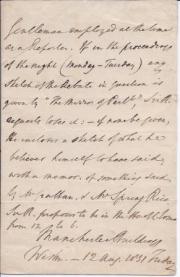 Gentleman employed at the time
as a Reporter. If in the proceedings
of the night (Monday - Tuesday) any
sketch of the Debate in question is
given by "The Mirror of Parlt"
requests to see it: - if none be given,
he encloses a sketch of what he
believes himself to have said,
with a memor. of something said
by Mr. Grattan, & Mr Spring Rice
proposes to be in the H. of Commons
from 12 to 6.
Manchester Buildings
Westr. - 12 Aug. 1831